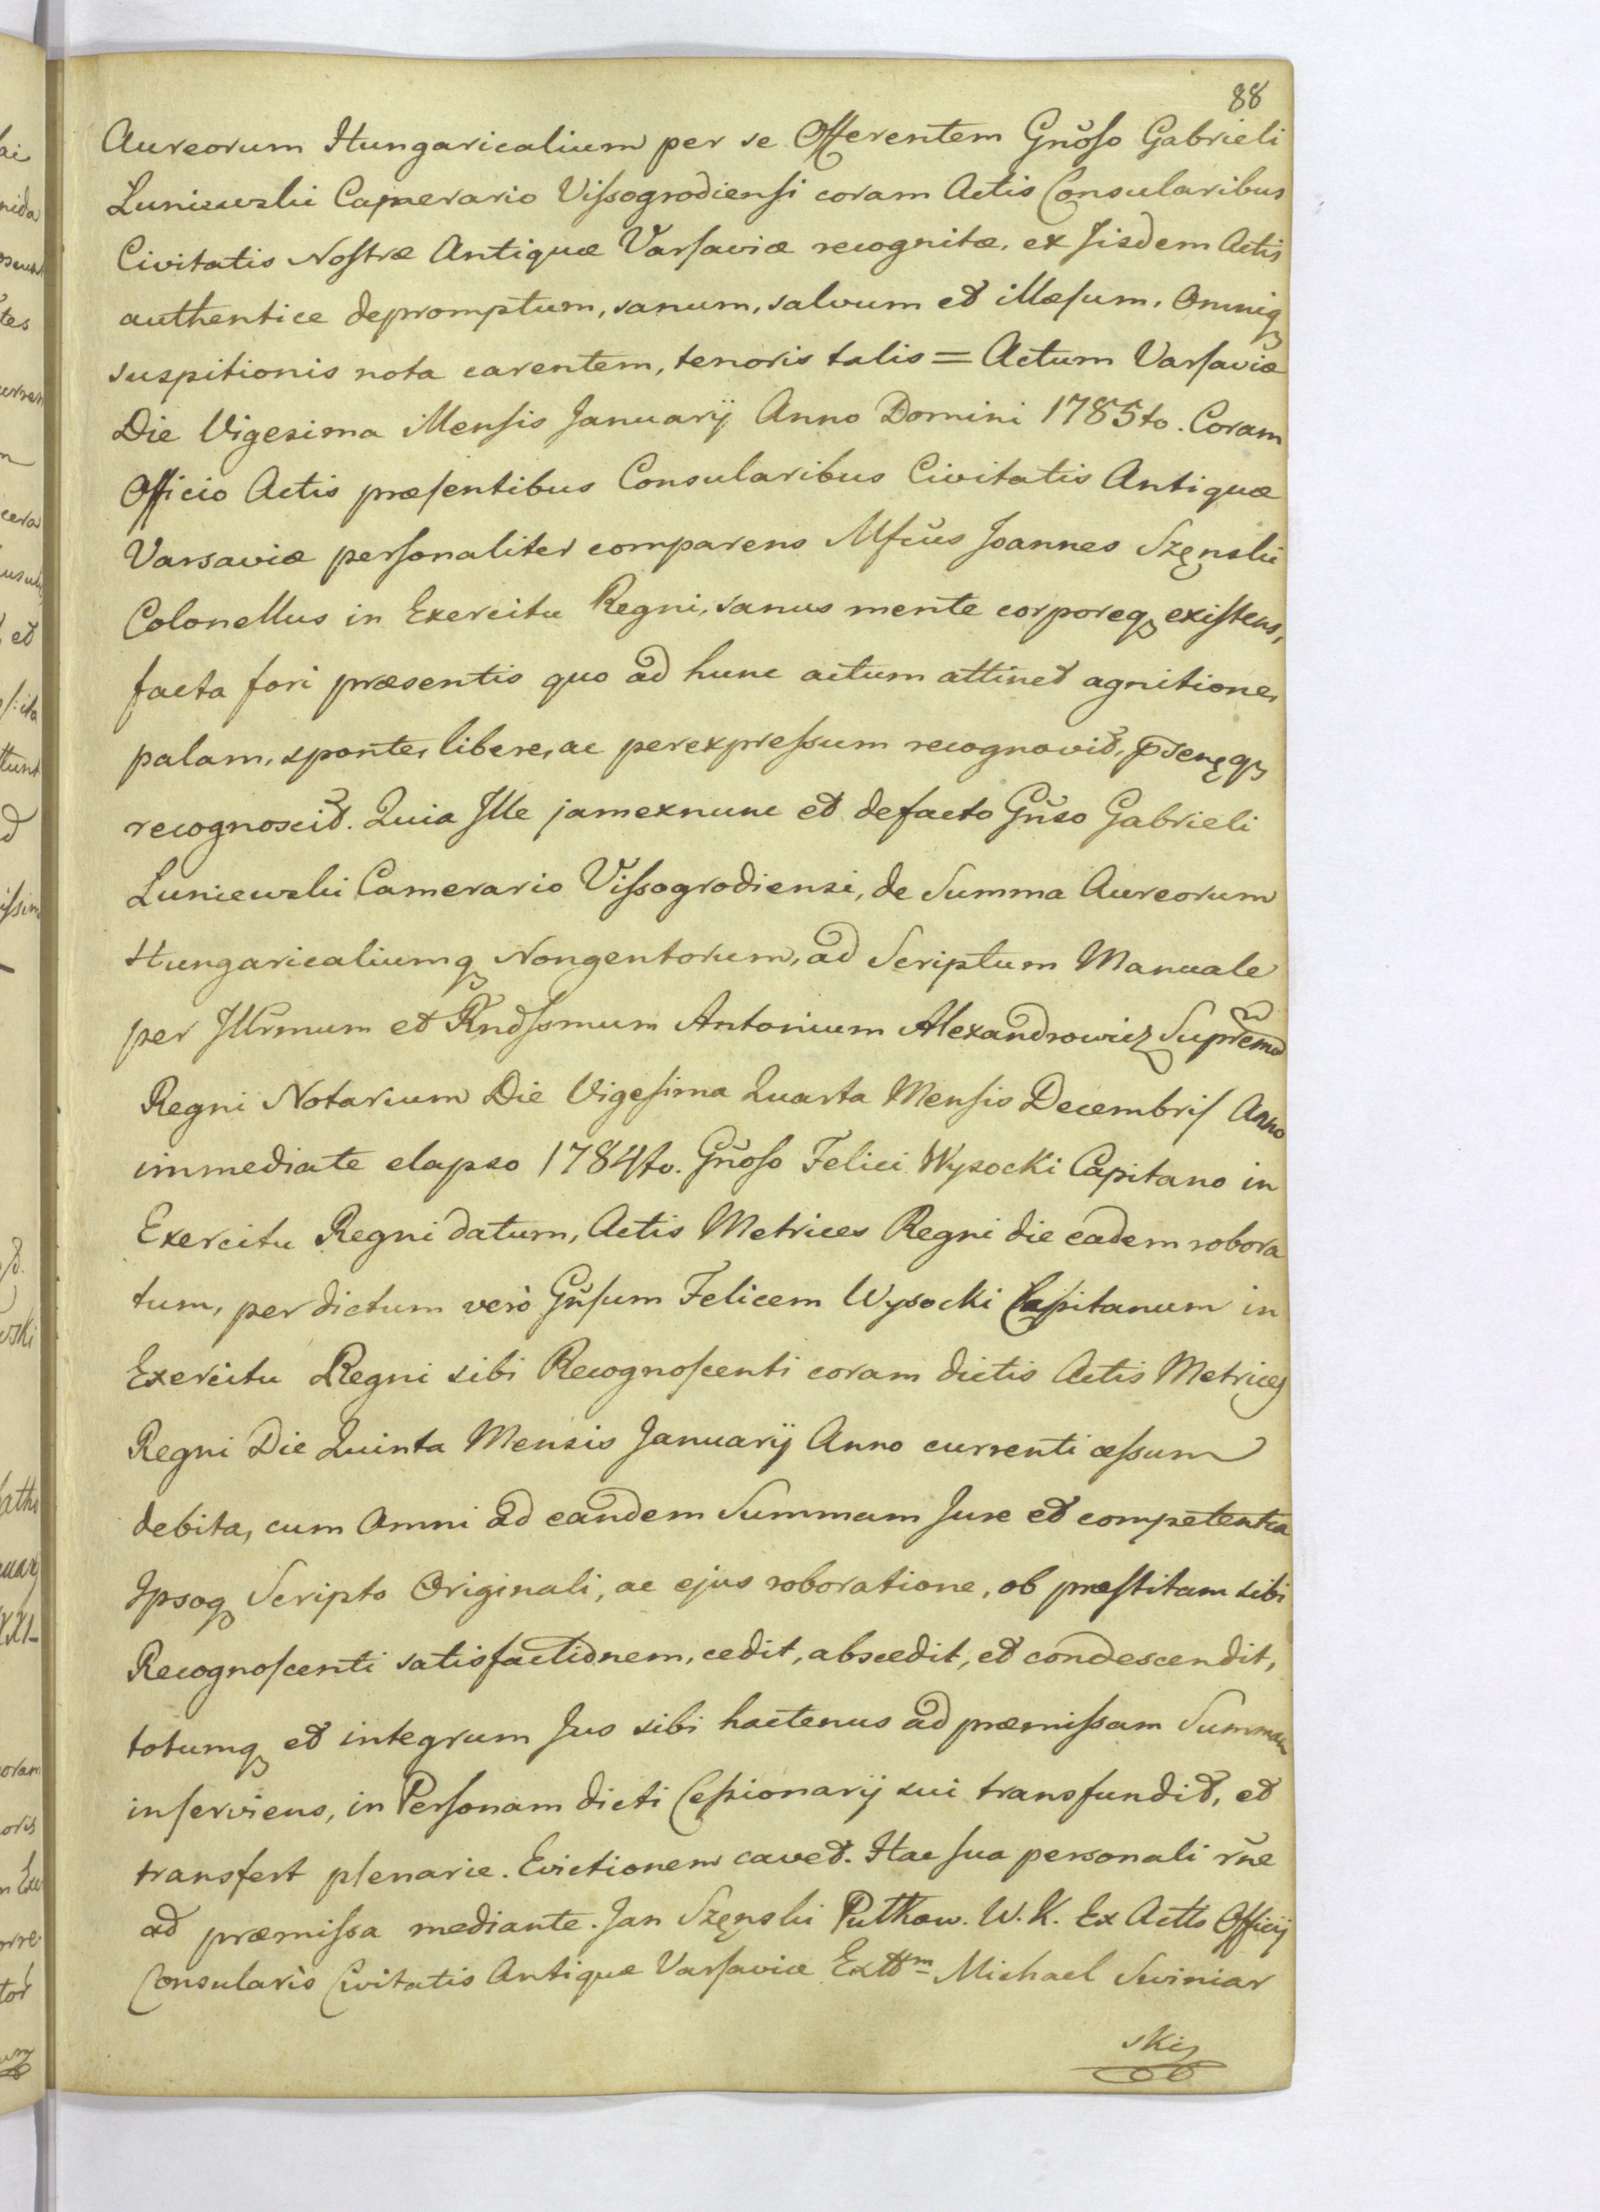 88
Aureorum Hungaricalium per se Offerentem Gnõso Gabrieli
Luniewski Camerario Vissogrodiensi coram Actis Consularibus
Civitatis Nostræ Antiquæ Varsaviæ recognitæ, ex Jisdem Actis
authentice depromptum, sanum, salvum et illæsum, Omniq
suspitionis nota carentem, tenoris talis = Actum Varsaviæ
Die Vigesima Mensis Januarij Anno Domini 1785to. Coram
Officio Actis præsentibus Consularibus Civitatis Antiquæ
Varsaviæ personaliter comparens Mfcũs Joannes Szęnski
Colonellus in Exercitu Regni, sanus mente corporeq existens,
facta fori præsentis quo ad hunc actum attinet agnitione,
palam, sponte, libere, ac perexpressum recognovit,
recognoscit. Quia Jlle jamexnunc et defacto Gñso Gabrieli
Luniewski Camerario Vissogrodiensi, de Summa Aureorum
Hungaricaliumq Nongentorum, ad Scriptum Manuale
per Jllrmum et Rndssmum Antonium Alexandrowicz Supremũ
Regni Notarium Die Vigesima Quarta Mensis Decembris Anno
immediate elapso 1784to. Gnõso Felici Wysocki Capitano in
Exercitu Regni datum, Actis Metrices Regni die eadem robora
tum, per dictum verò Gñsum Felicem Wysocki Capitanum in
Exercitu Regni sibi Recognoscenti coram dictis Actis Metrices
Regni Die Quinta Mensis Januarij Anno currenti cessum
debita, cum Omni ad eandem Summam Jure et competentia
Jpsoq Scripto Originali, ac ejus roboratione, ob præstitam sibi
Recognoscenti satisfactionem, cedit, abscedit, et condescendit,
totumq et integrum Jus sibi hactenus ad præmissam Summam
inserviens, in Personam dicti Cessionarij sui transfundit, et
transfert plenarie. Evictionem cavet. Hac sua personali rñe
ad præmissa mediante. Jan Szęnski Putkow. W. K. Ex Actis Officij
Consularis Civitatis Antiquæ Varsaviæ Exttm Michael Swiniar
ski